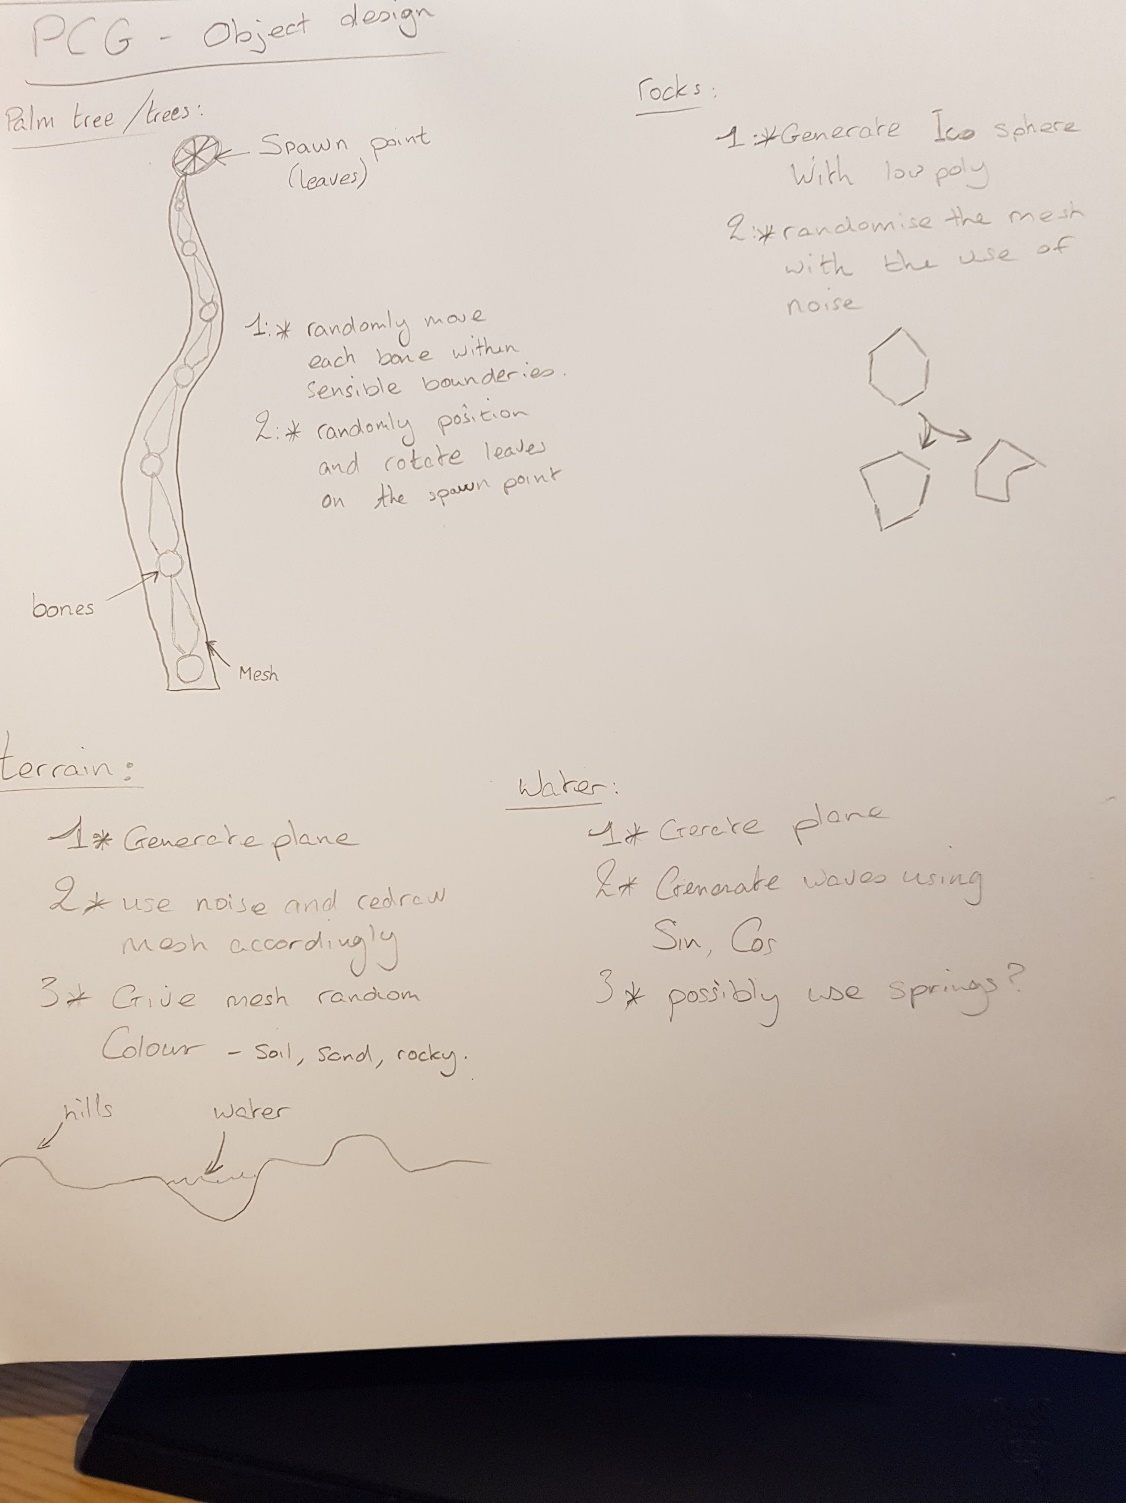 PCG - Object design
Palm tree/trees:
Spawn point
(leaves)
1:* randomly move
each bone within
sensible bounderies.
2:* randomly position
and rotate leaves
on the spawn point
bones
Mesh
rocks:
1:* Generate Ico sphere
With low poly
2:* randomise the mesh
with the use of
noise
terrain:
1* Generate plane
2* use noise and redraw
mesh accordingly
3* Give mesh random
Colour - soil, sand, rocky.
hills
water
Water:
1* Create plane
2* Generate waves using
Sin, Cos
3* possibly use springs?